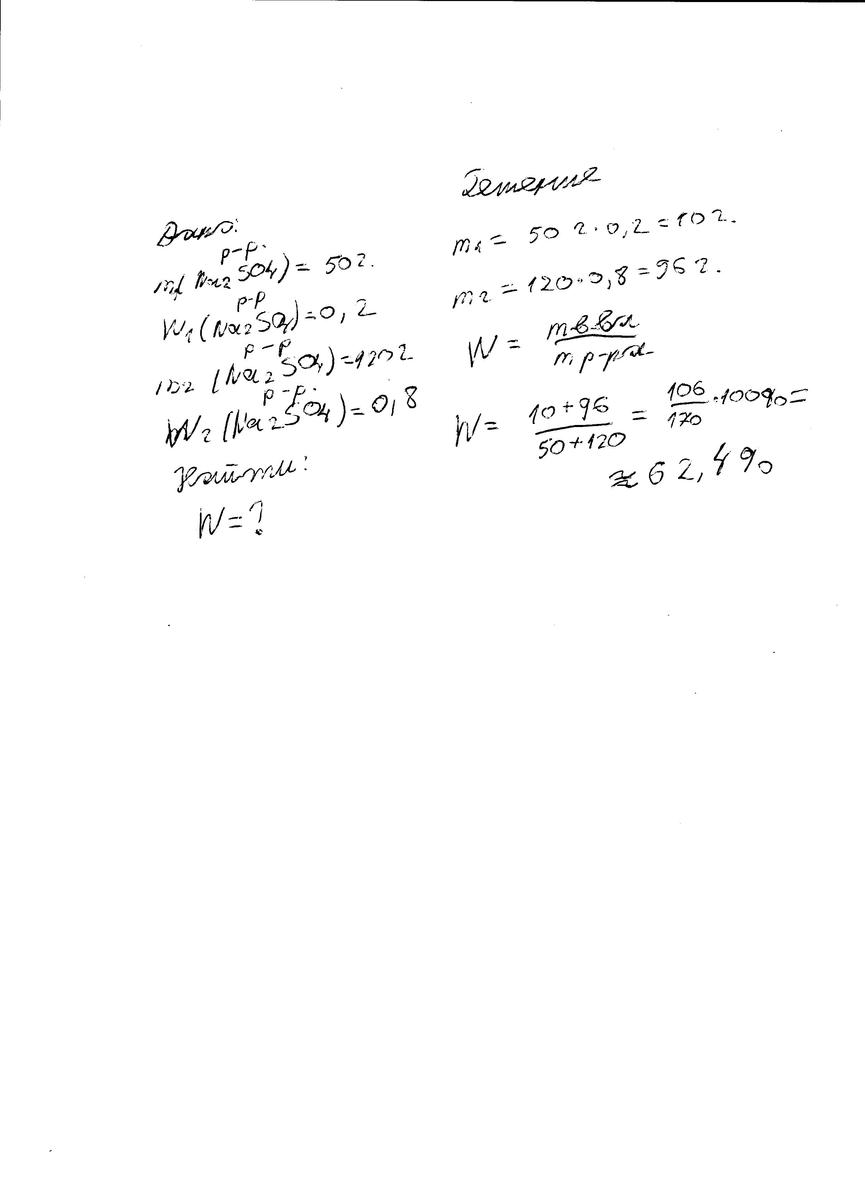 Дано:
m1(Na2SO4) р-р. = 50г.
W1(Na2SO4) р-р = 0,2
m2(Na2SO4) р-р = 120г
W2(Na2SO4) р-р. = 0,8
Найти:
W=?
Решение
m1 = 50г·0,2=10г.
m2 = 120·0,8=96г.
W = m в-ва / m р-ра
W = 10+96 / 50+120 = 106 / 170 ·100%=
≈62,4%